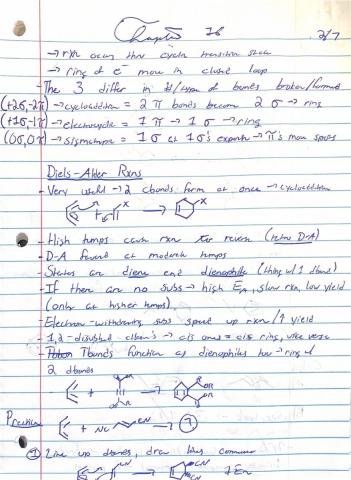 Chapter 16 2/7
→ rxn occurs thru cyclic transition state
→ ring of e⁻ move in closed loop
- The 3 differ in #/type of bonds broken/formed
(+2σ,-2π) → cycloaddition = 2 π bonds become 2 σ → ring
(+1σ,-1π) → electrocyclic = 1 π → 1 σ → ring
(0σ,0π) → sigmatropic = 1 σ at 1 σ's expense → π's move spots
Diels-Alder Rxns
- Very useful → 2 cbonds form at once → cycloaddition
+ X → X
- High temps cause rxn to reverse (retro D-A)
- D-A favored at moderate temps
- States are diene and dienophile (thing w/ 1 dbond)
- If there are no subs → high EA, slow rxn, low yield
(only at higher temps)
- Electron-withdrawing subs speed up rxn/↑ yield
- 1,2-disubstd alkenes → cis ones = cis ring, vice versa
- Tbonds function as dienophiles too → ring w/
2 dbonds
+ OR → OR
Practice + NC CN → ?
① Line up dbonds, draw
→ CN CN